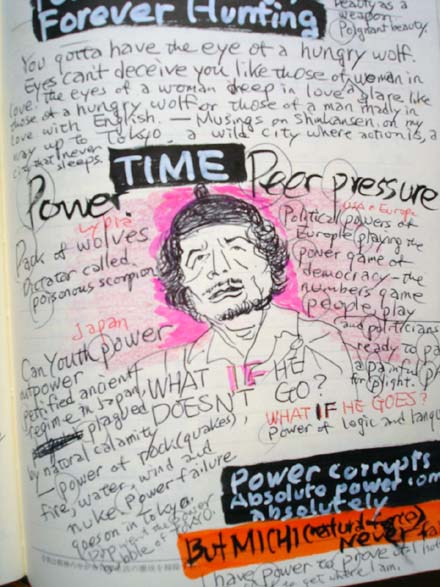 Forever Hunting
beauty as a
weapon.
Poignant beauty.
You gotta have the eye of a hungry wolf.
Eyes can't deceive you like those of woman in
love! the eyes of a woman deep in love glare like
those of a hungry wolf or those of a man madly in
love with English. — Musings on Shinkansen, on my
way up to Tokyo, a wild city where action is, a
city that never sleeps.
TIME
Power. Peer pressure
Lybia
Pack of wolves
Dictator called
poisonous scorpion
USA & Europe
Political powers of
Europe playing the
power game of
democracy – the
numbers game
people play
(and politicians
ready to
a painful
fire fight.
Japan
Can Youth power
outpower
petrified ancient
regime in Japan,
plagued
by natural calamity
— power of rock (quakes),
fire, water, wind and
nuke power failure.
goes on in Tokyo.
WHAT IF HE
DOESN'T GO?
WHAT IF HE GOES?
Power of logic and
Power corrupts
Absolute power
absolutely
But MICHI (natural force)
Never
I have power to prove
get where I am.